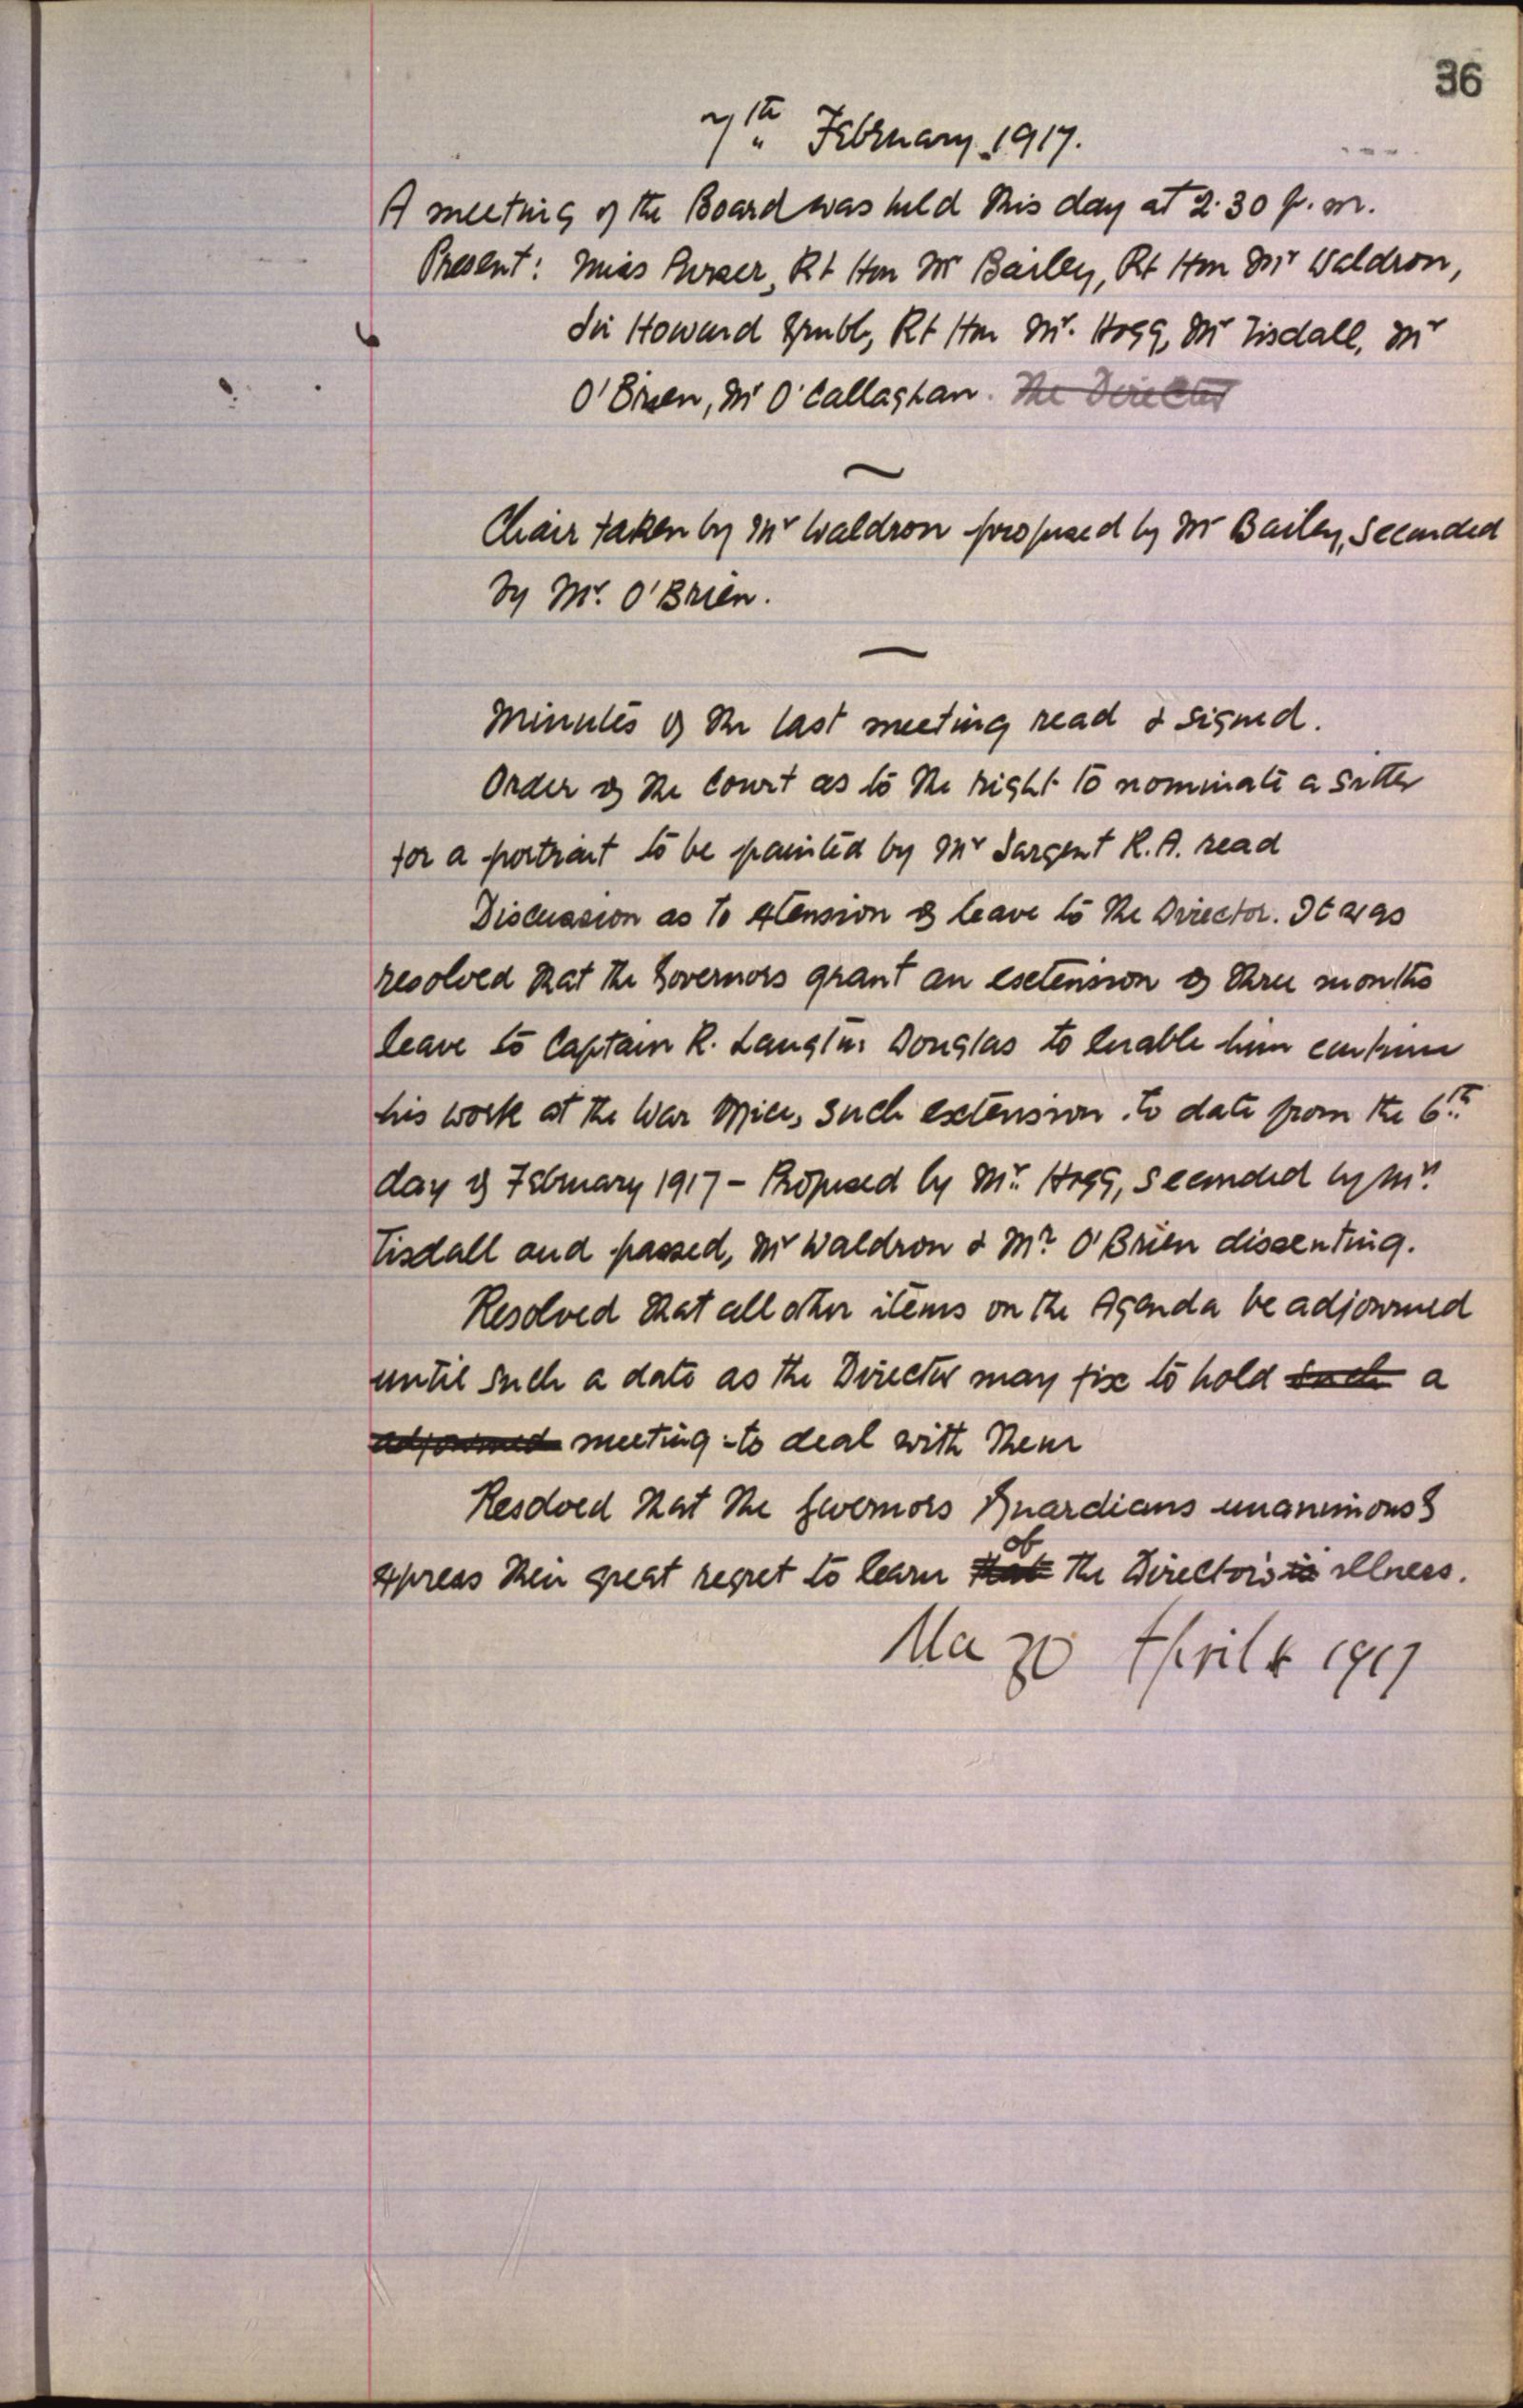 36
7th February 1917.
A meeting of the Board was held this day at 2.30 p.m.
Present: Miss Purser, Rt Hon Mr Bailey, Rt Hon Mr Waldron,
Sir Howard Grubb, Rt Hon Mr. Hogg, Mr Tisdall, Mr
O'Brien, Mr O'Callaghan. The Director
Chair taken by Mr Waldron proposed by Mr Bailey, seconded
by Mr. O'Brien.
Minutes of the last meeting read & signed.
Order of the Court as to the right to nominate a sitter
for a portrait to be painted by Mr Sargent R.A. read
Discussion as to extension of leave to the Director. It was
resolved that the Governors grant an extension of three months
leave to Captain R. Langton Douglas to enable him continue
his work at the War Office, such extension to date from the 6th
day of February 1917 - Proposed by Mr. Hogg, seconded by Mr.
Tisdall and passed, Mr Waldron & Mr. O'Brien dissenting.
Resolved that all other items on the Agenda be adjourned
until such a date as the Director may fix to hold such a
adjourned meeting to deal with them
Resolved that the Governors & Guardians unanimously
express their great regret to learn that of the Director's is illness.
April 4 1917